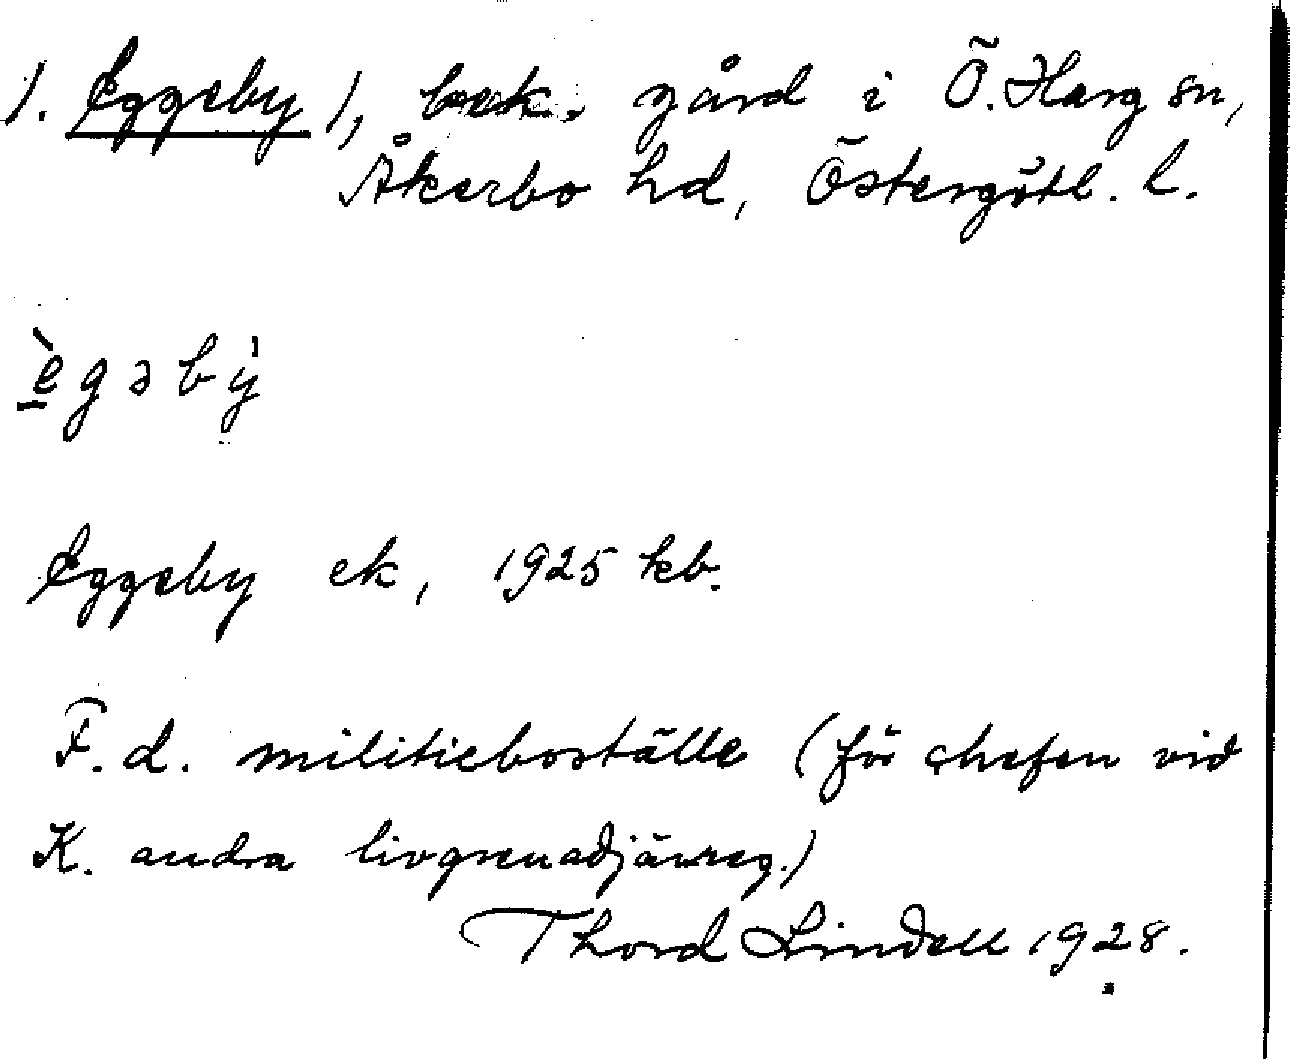 1. Eggeby 1, bok. gård i Ö. Harg sn,
Åkerbo hd, Östergötl. l.
èg ə bẏ̀
Eggeby ek, 1925 kb.
F. d. militieboställe (för chefen vid
K. andra livgrenadjärreg.)
Thord Lindell 1928.